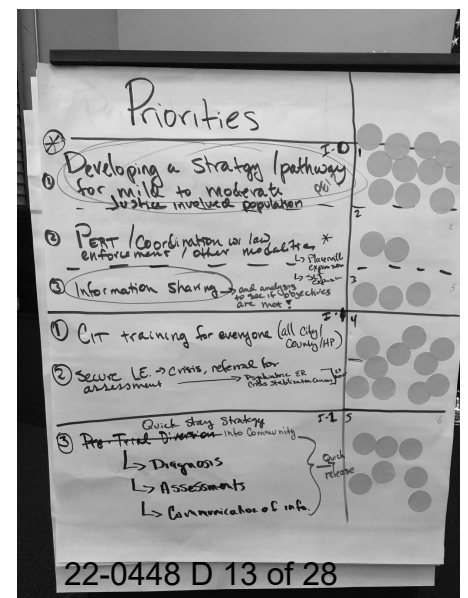 Priorities
I-0 1
① Developing a Strategy/pathway
for mild to moderate
Justice involved population
2
② PERT/Coordination w/ law *
enforcement / other modalities
↳ Placerville expansion
expansion
③ Information Sharing → and analysis 3
to see if objectives
are met!
4
① CIT training for everyone (all City/
County/HP)
② Secure L.E. → Crisis, referral for
assessment → Psychiatric ER
Crisis Stabilization
Quick Stay Strategy I-2 5
③ Pre-Trial Diversion into Community
↳ Diagnosis
↳ Assessments
↳ Communication of info.
→ Quick
release
22-0448 D 13 of 28